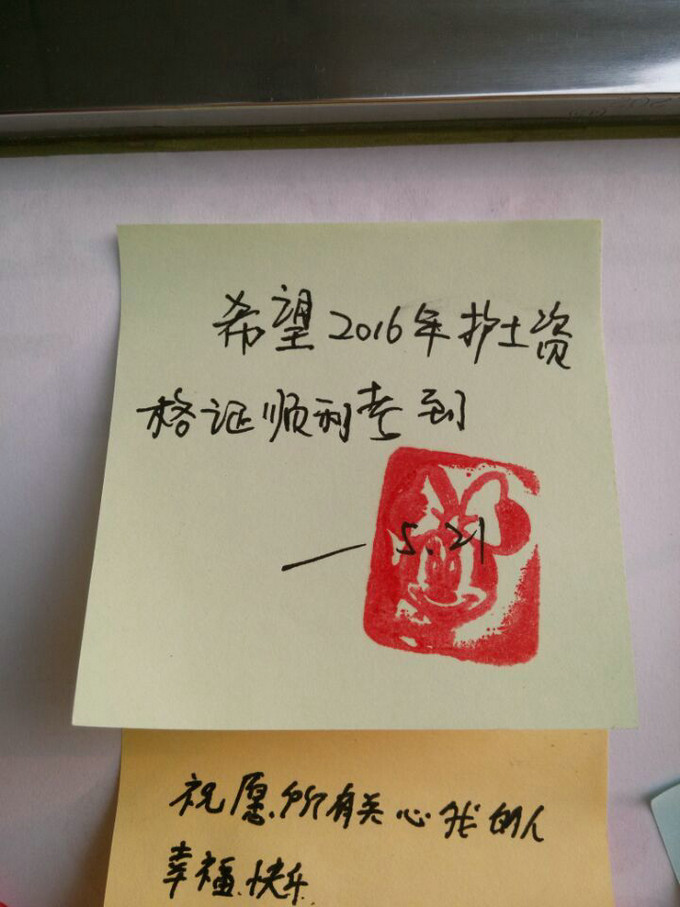 希望2016年护士资
格证顺利考到
— 5.21
祝愿所有关心我的人
幸福.快乐